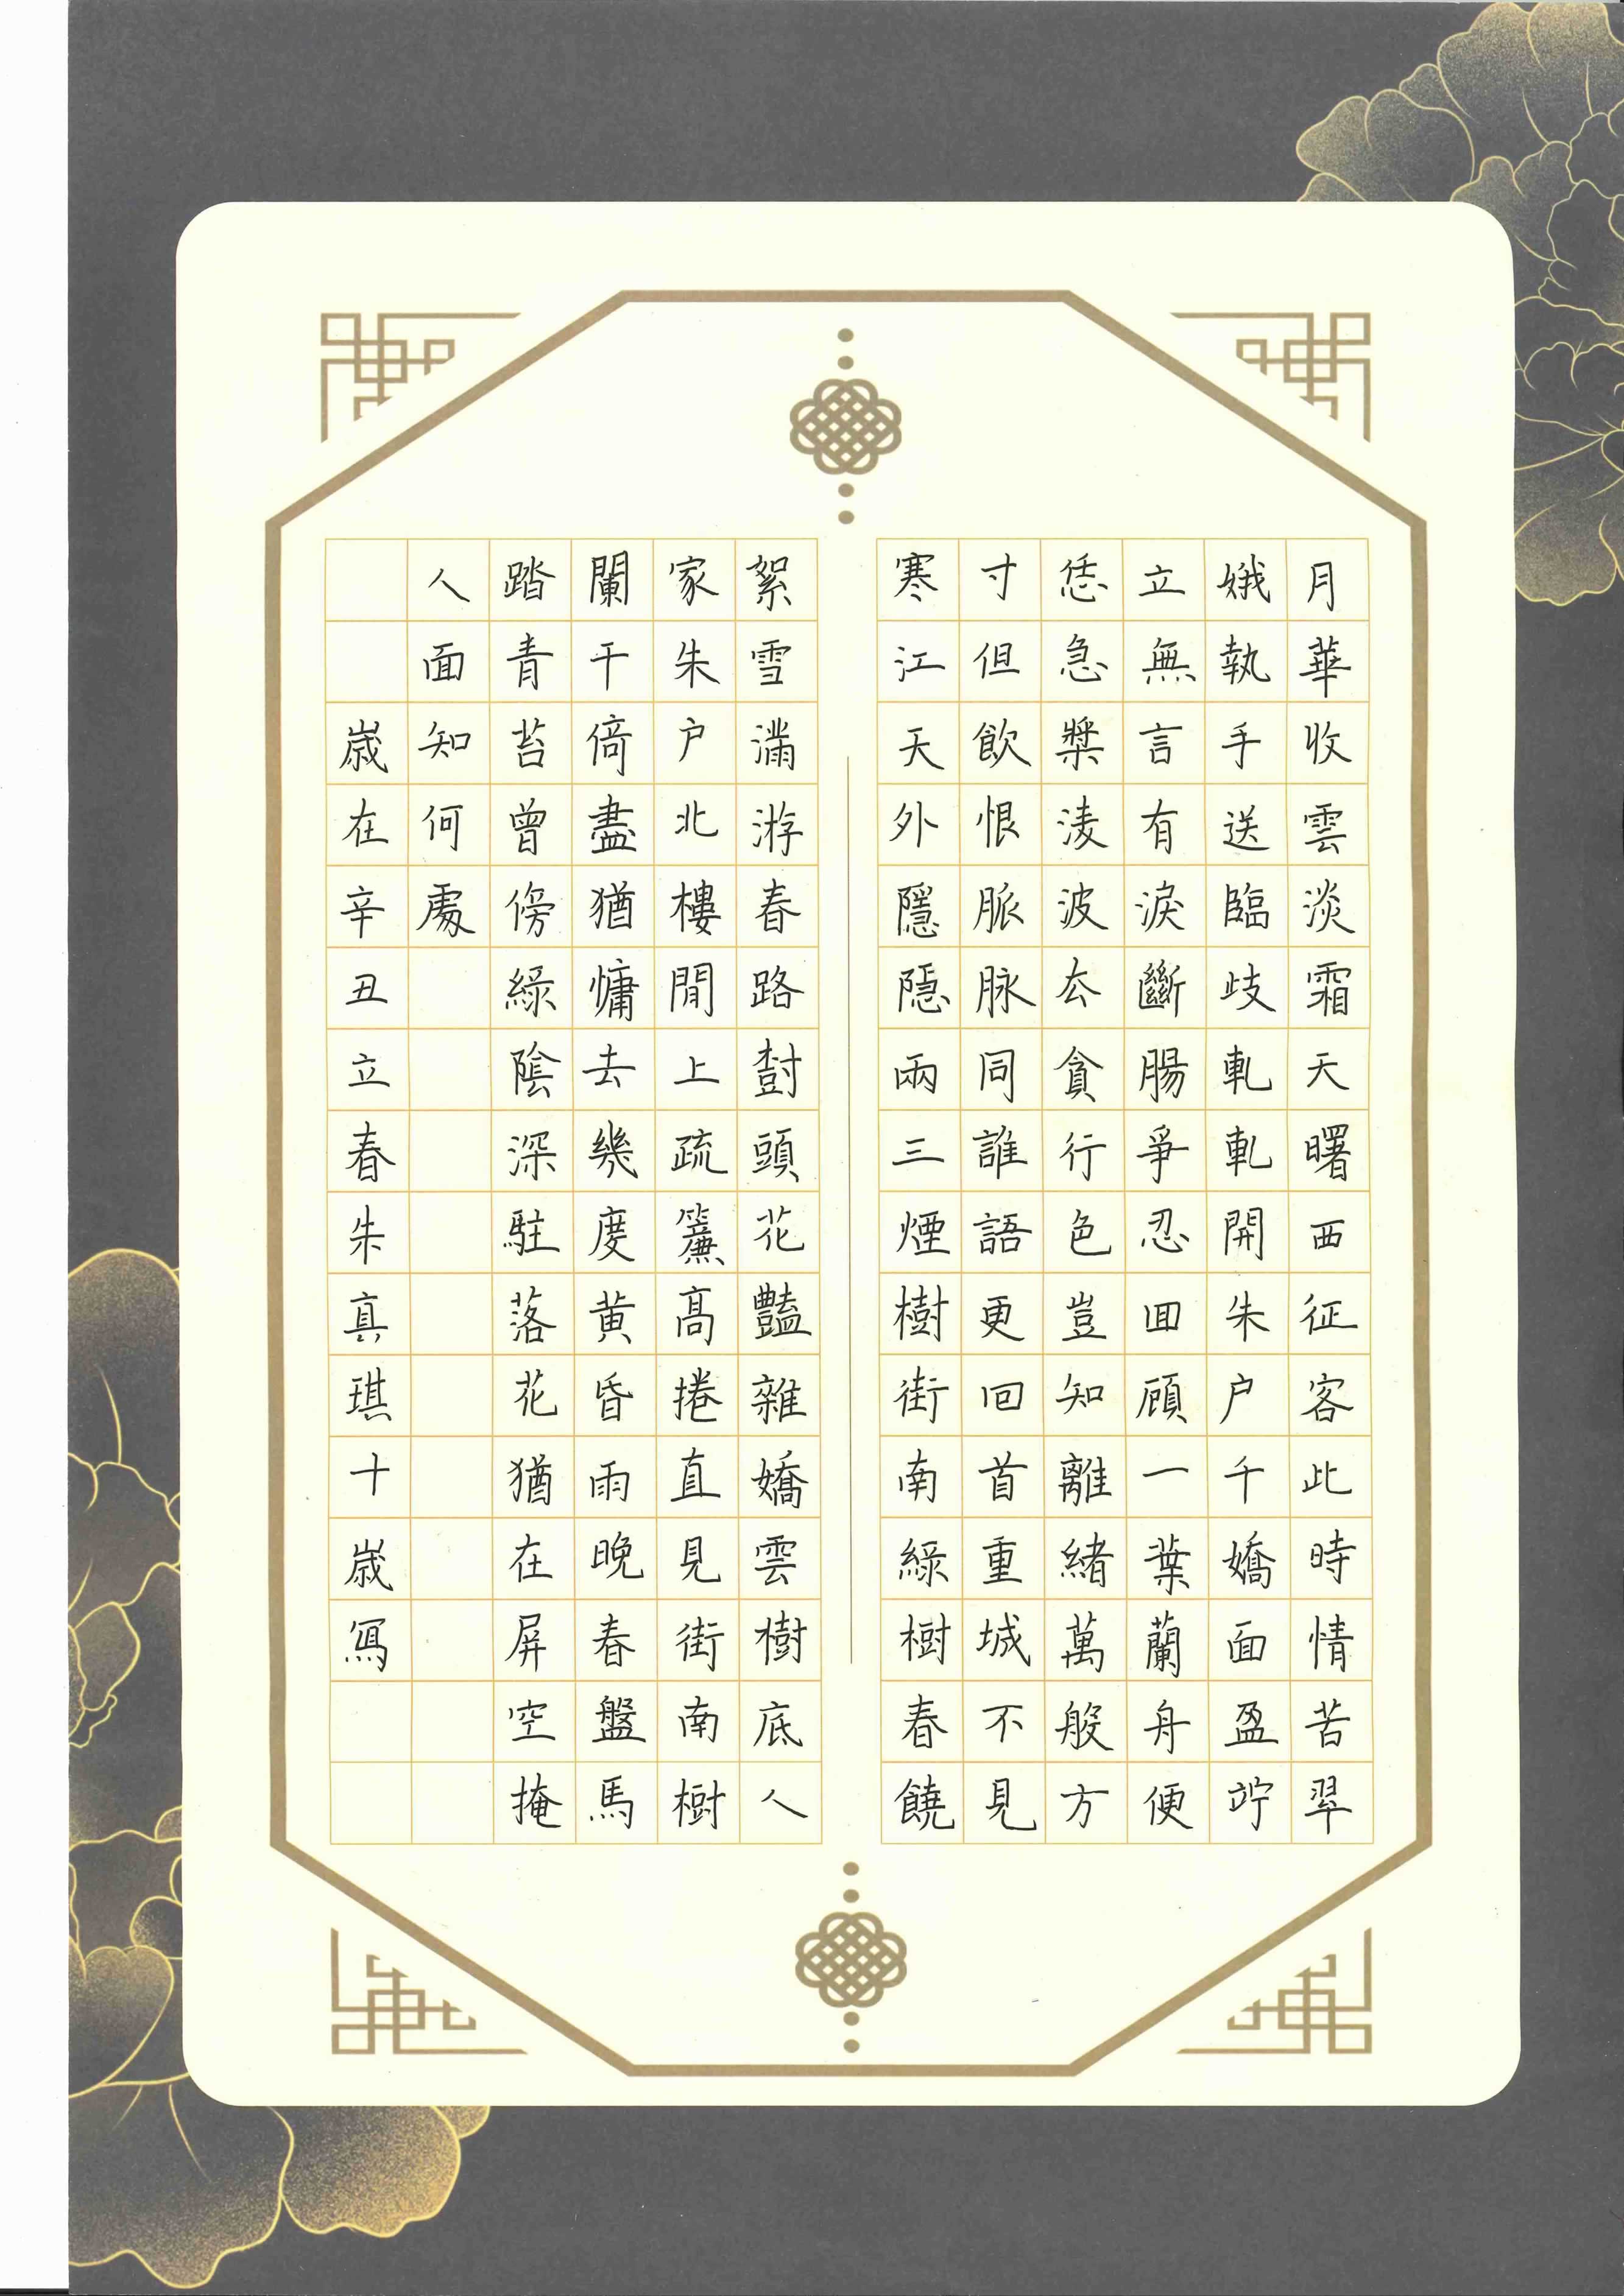 月華收雲淡霜天曙西征客此時情苦翠
娥執手送臨歧軋軋開朱户千嬌面盈竚
立無言有淚斷腸爭忍回顧一葉蘭舟便
恁急槳淩波去貪行色豈知離緒萬般方
寸但飲恨脈脉同誰語更回首重城不見
寒江天外隱隱兩三煙樹街南綠樹春饒
絮雪滿游春路樹頭花豔雜嬌雲樹底人
家朱户北樓閒上疏簾高捲直見街南樹
闌干倚盡猶慵去幾度黄昏雨晚春盤馬
踏青苔曾傍綠陰深駐落花猶在屏空掩
人面知何處
歲在辛丑立春朱真琪十歲寫